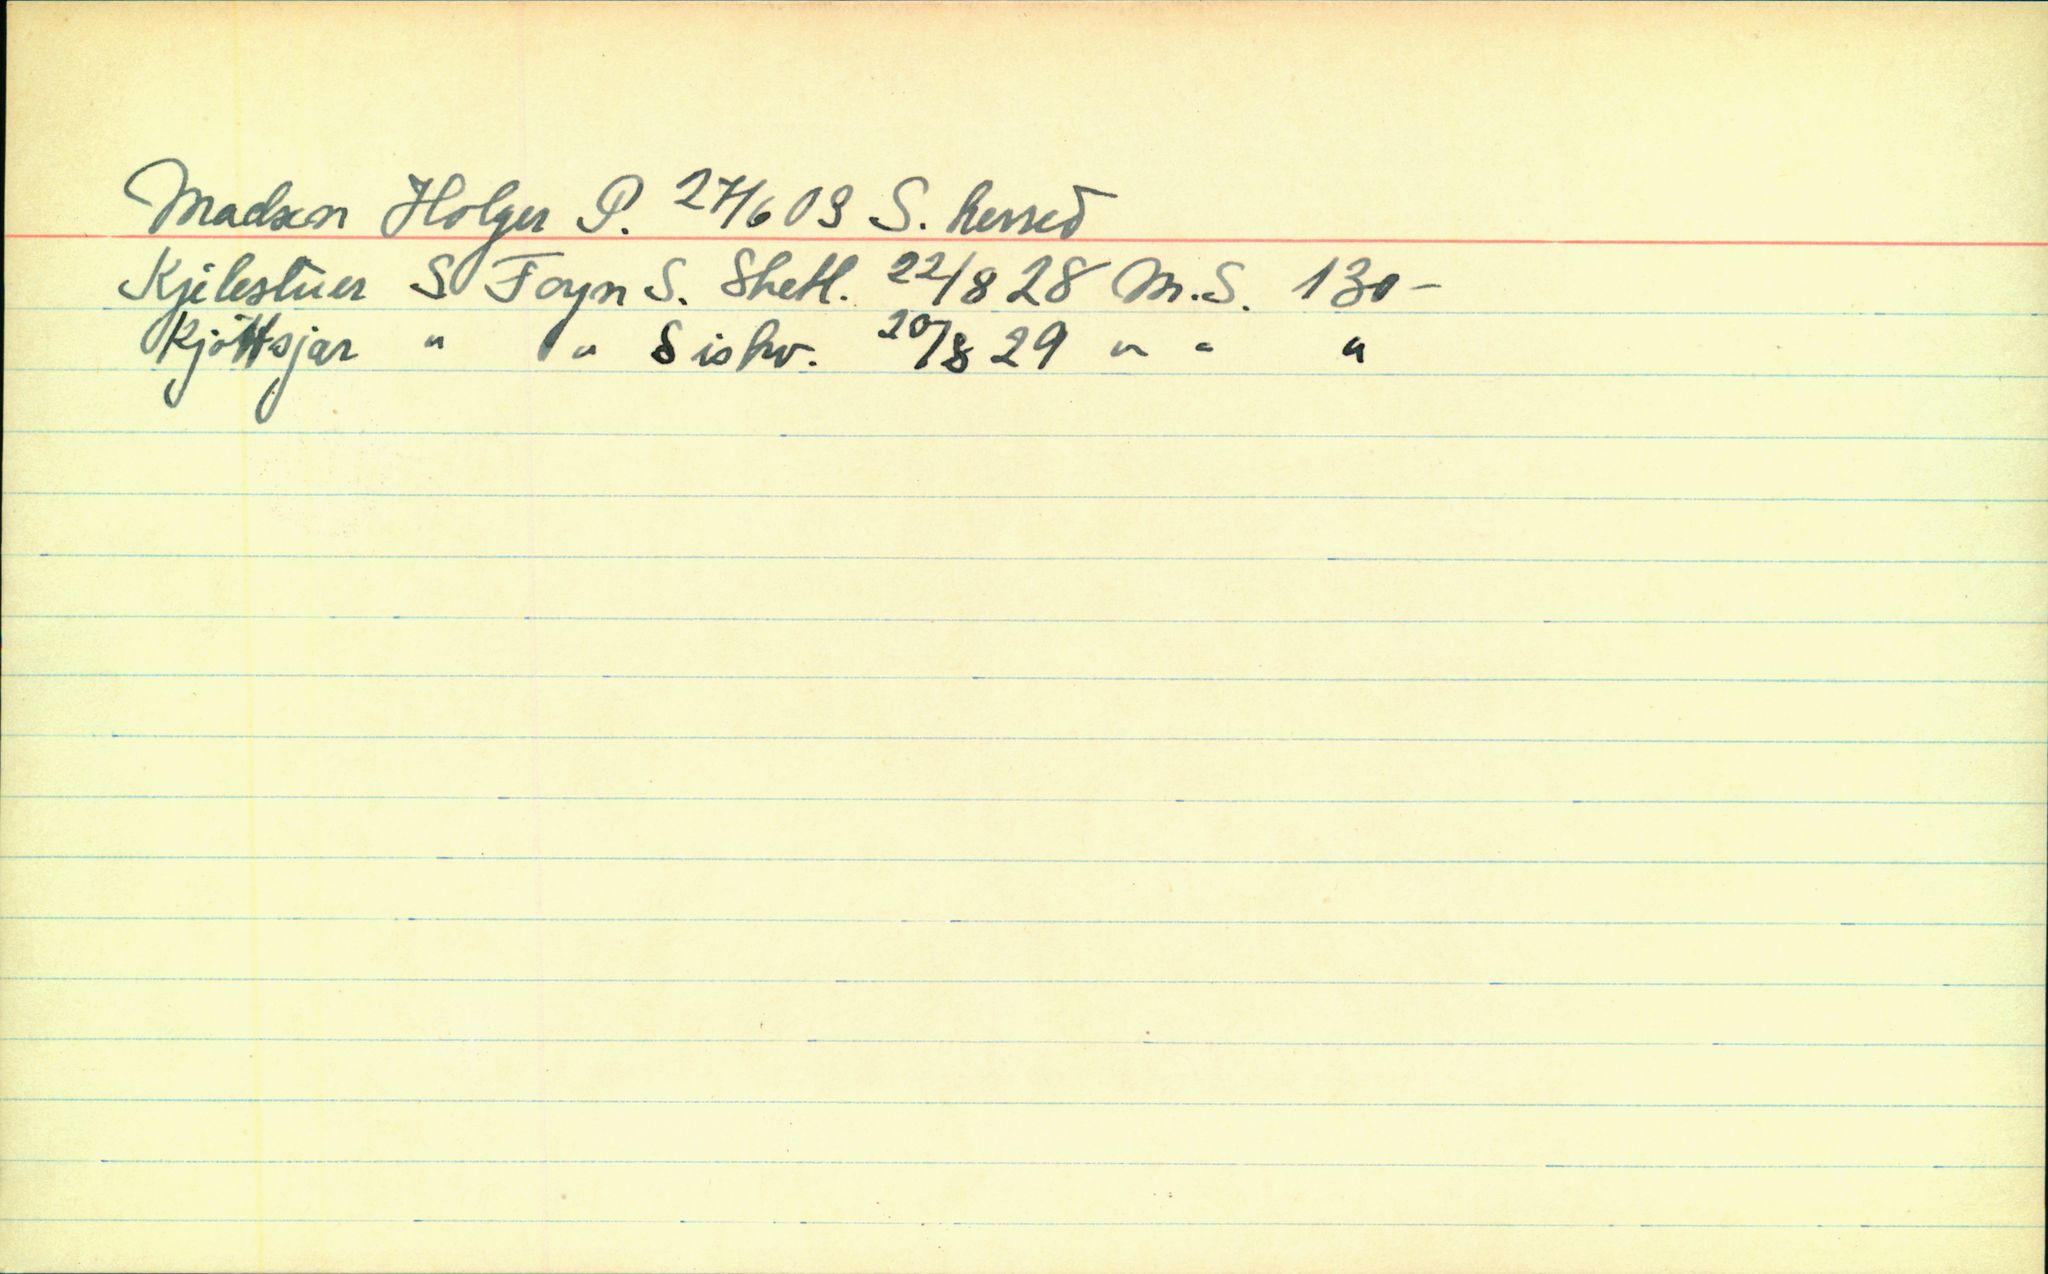 Madsen Holger P. 27/6 09 S. herred
Kjelestuer S Foyn S. Shetl. 22/8 28 M.S. 130-
Kjöttsjar " " S ishv. 20/8 29 " " "